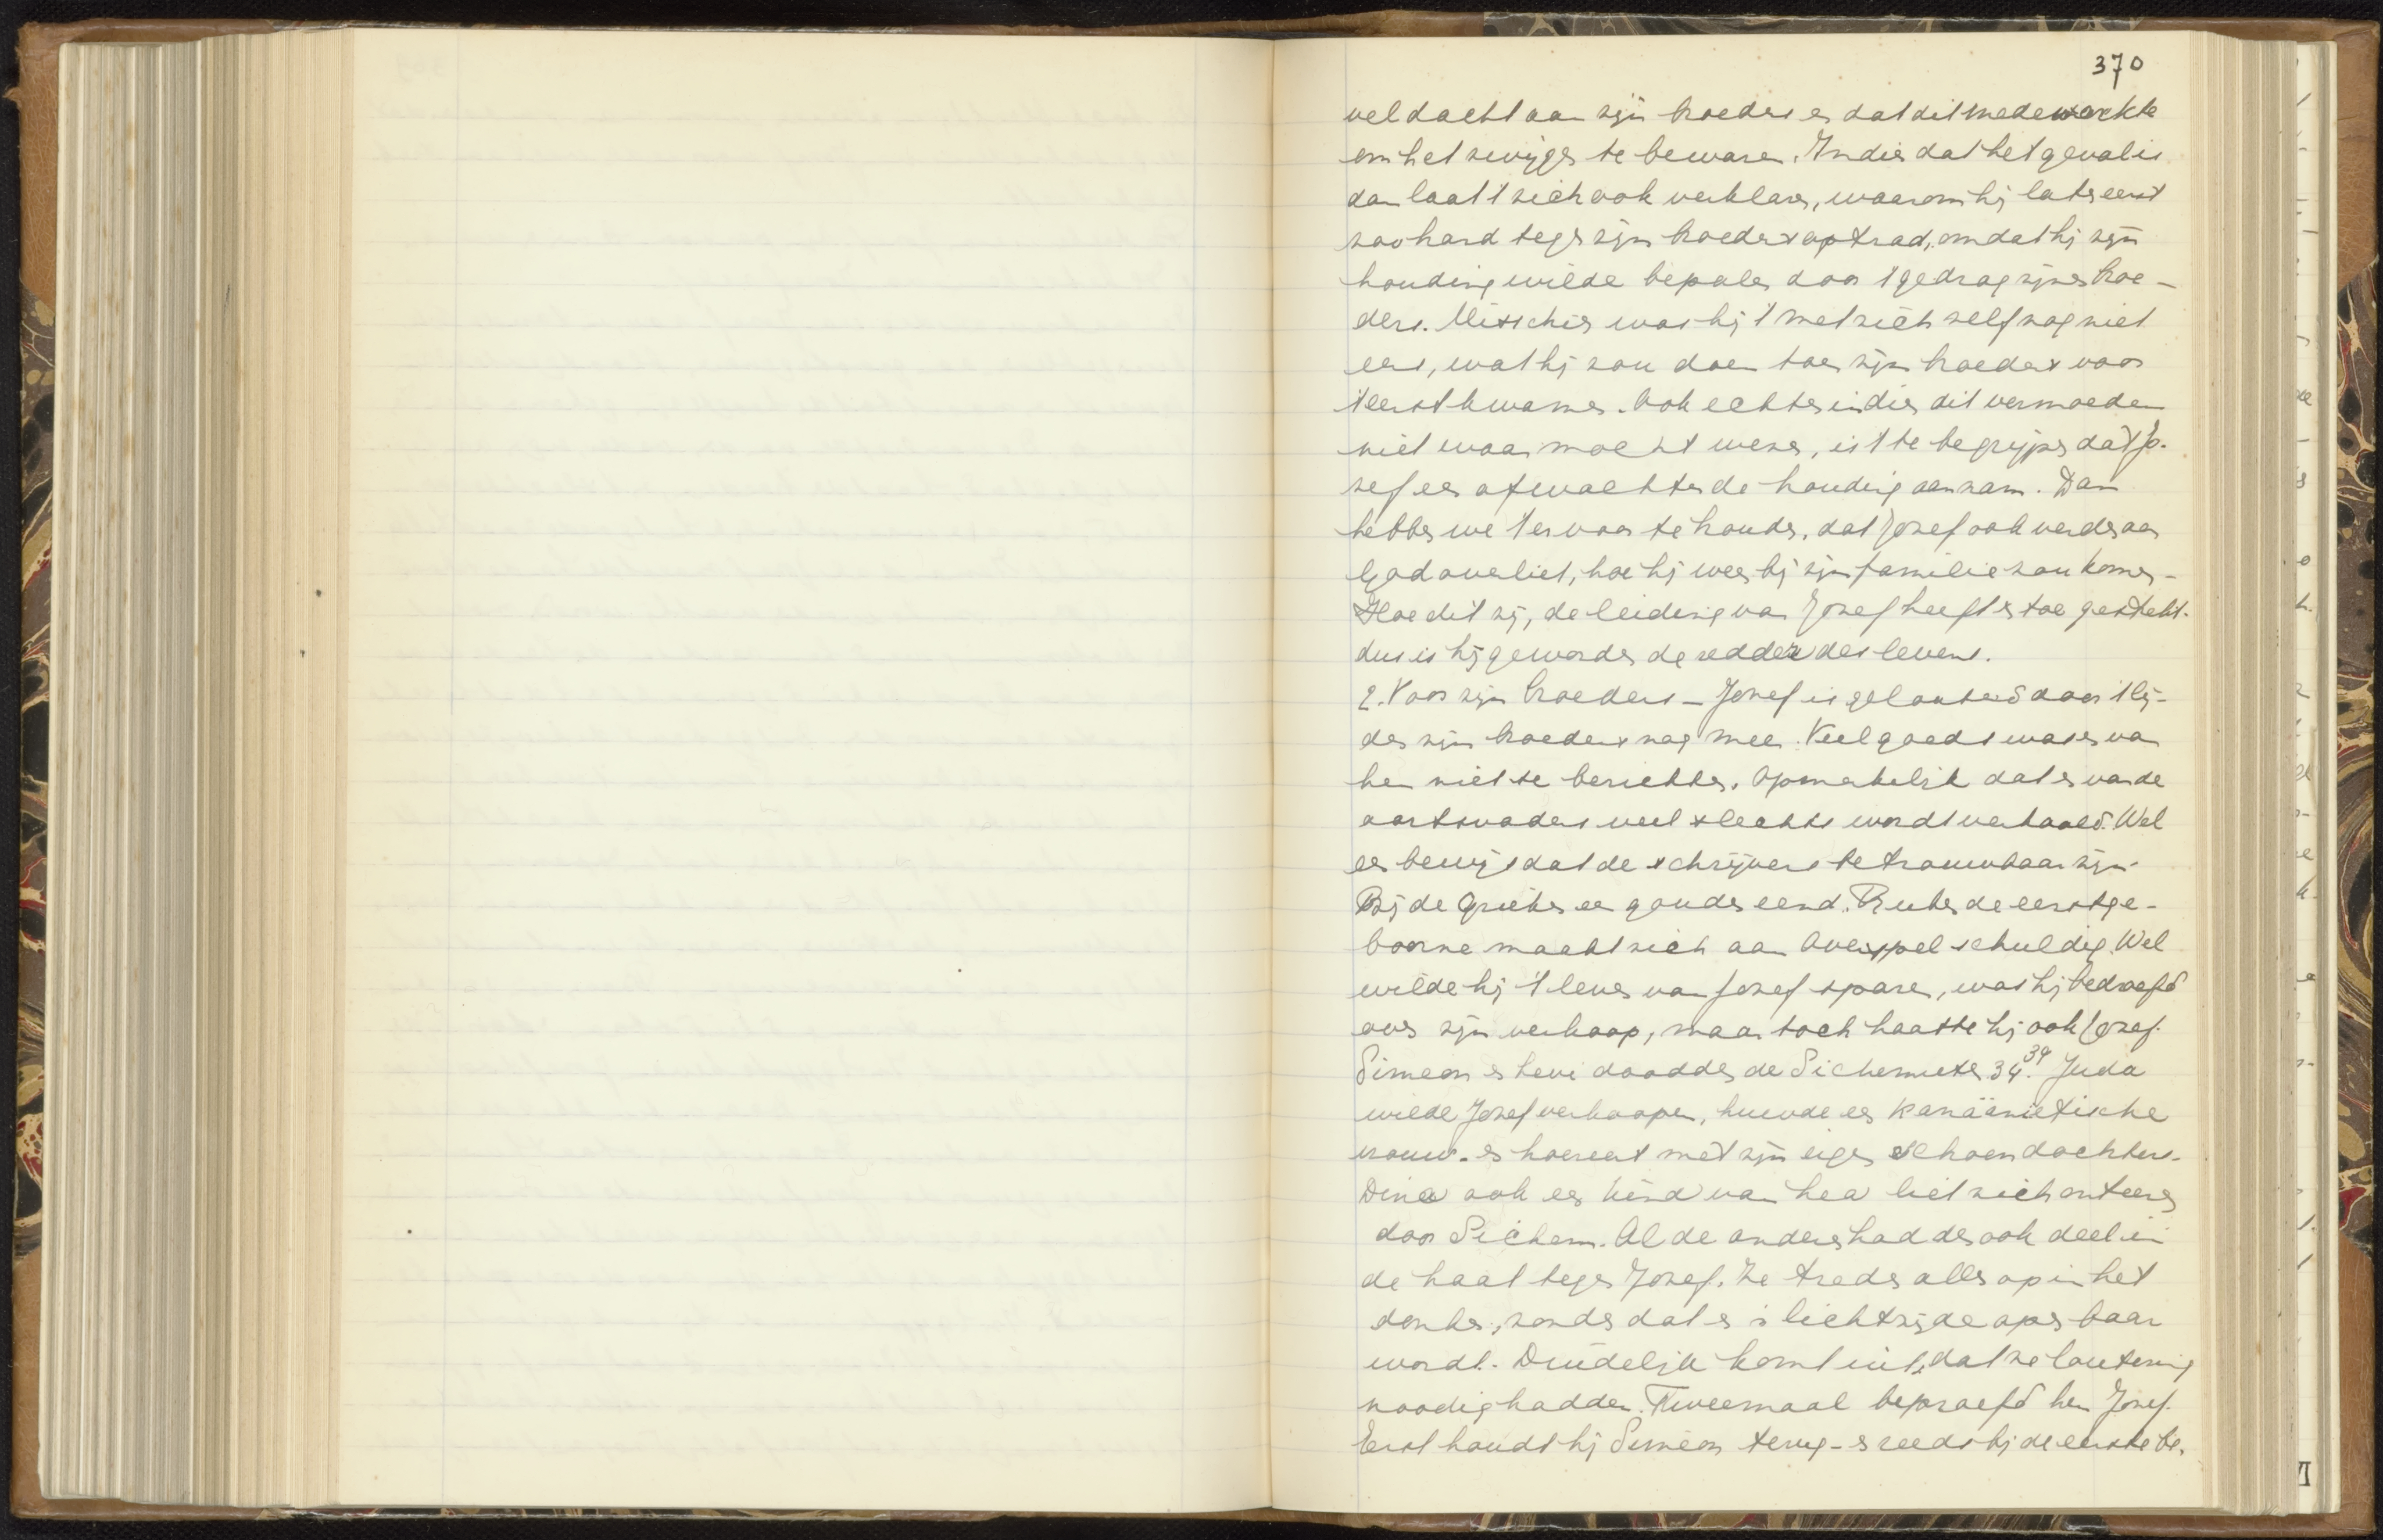 370
veel dacht aan zijn broeders en dat dit medewerkte
om het zwijgen te bewaren. Indien dat het geval is
dan laat 't zich ook verklaren, waarom hij later eerst
zoo hard tegen zijn broeders optrad, omdat hij zijn
houding wilde bepalen door 't gedrag zijner broe-
ders. Misschien was hij 't met zich zelf nog niet
eens, wat hij zou doen toen zijn broeders voor
't eerst kwamen. Ook echter indien dit vermoeden
niet waar mocht wezen, is 't te begrijpen dat Jo-
zef een afwachtende houding aannam. Dan
hebben we 't ervoor te houden, dat Jozef ook verder aan
God overliet, hoe hij weer bij zijn familie zou komen.
Hoe dit zij, de leiding van Jozef heeft er toe gestrekt.
dus is hij geworden de redder des levens.
2. Voor zijn broeders – Jozef is gelouterd door 't lij-
den zijn broeders nog meer. Veel goeds was er van
hen niet te berichten. Opmerkelijk dat er van de
aartsvaders veel slechts wordt verhaald. Wel
een bewijs dat de schrijvers betrouwbaar zijn.
Bij de Grieken een gouden eeuw. Ruben de eerstge-
boorne maakt zich aan overspel schuldig. Wel
wilde hij 't leven van Jozef sparen, was hij bedroefd
over zijn verkoop, maar toch haatte hij ook Jozef.
Simeon en Levi doodden de Sichemieten 34. 39 Juda
wilde Jozef verkoopen, huwde een Kanäanietische
vrouw. en hoereert met zijn eigen schoondochter.
Dina ook een kind van Lea liet zich onteeren
door Sichem. Al de anderen hadden ook deel in
de haat tegen Jozef. Ze treden allen op in het
donker, zonder dat er 'n lichtzijde openbaar
wordt. Duidelijk komt uit, dat ze loutering
noodig hadden. Tweemaal beproefd hen Jozef.
Eerst houdt hij Simeon terug – reeds bij de eerste be-